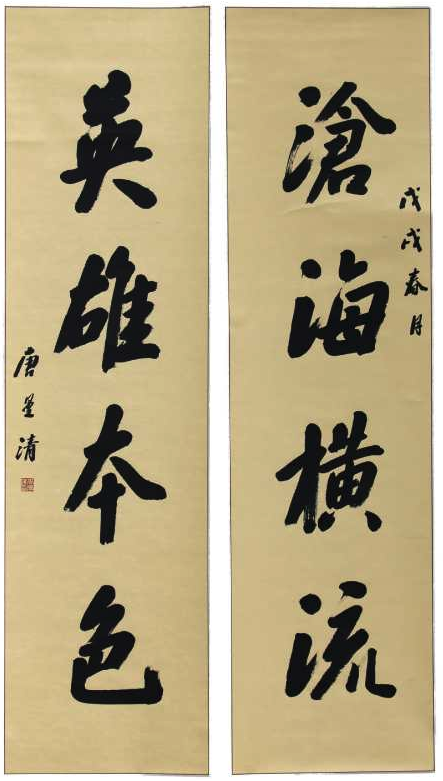 戊戌春月
滄海横流
英雄本色
唐星清